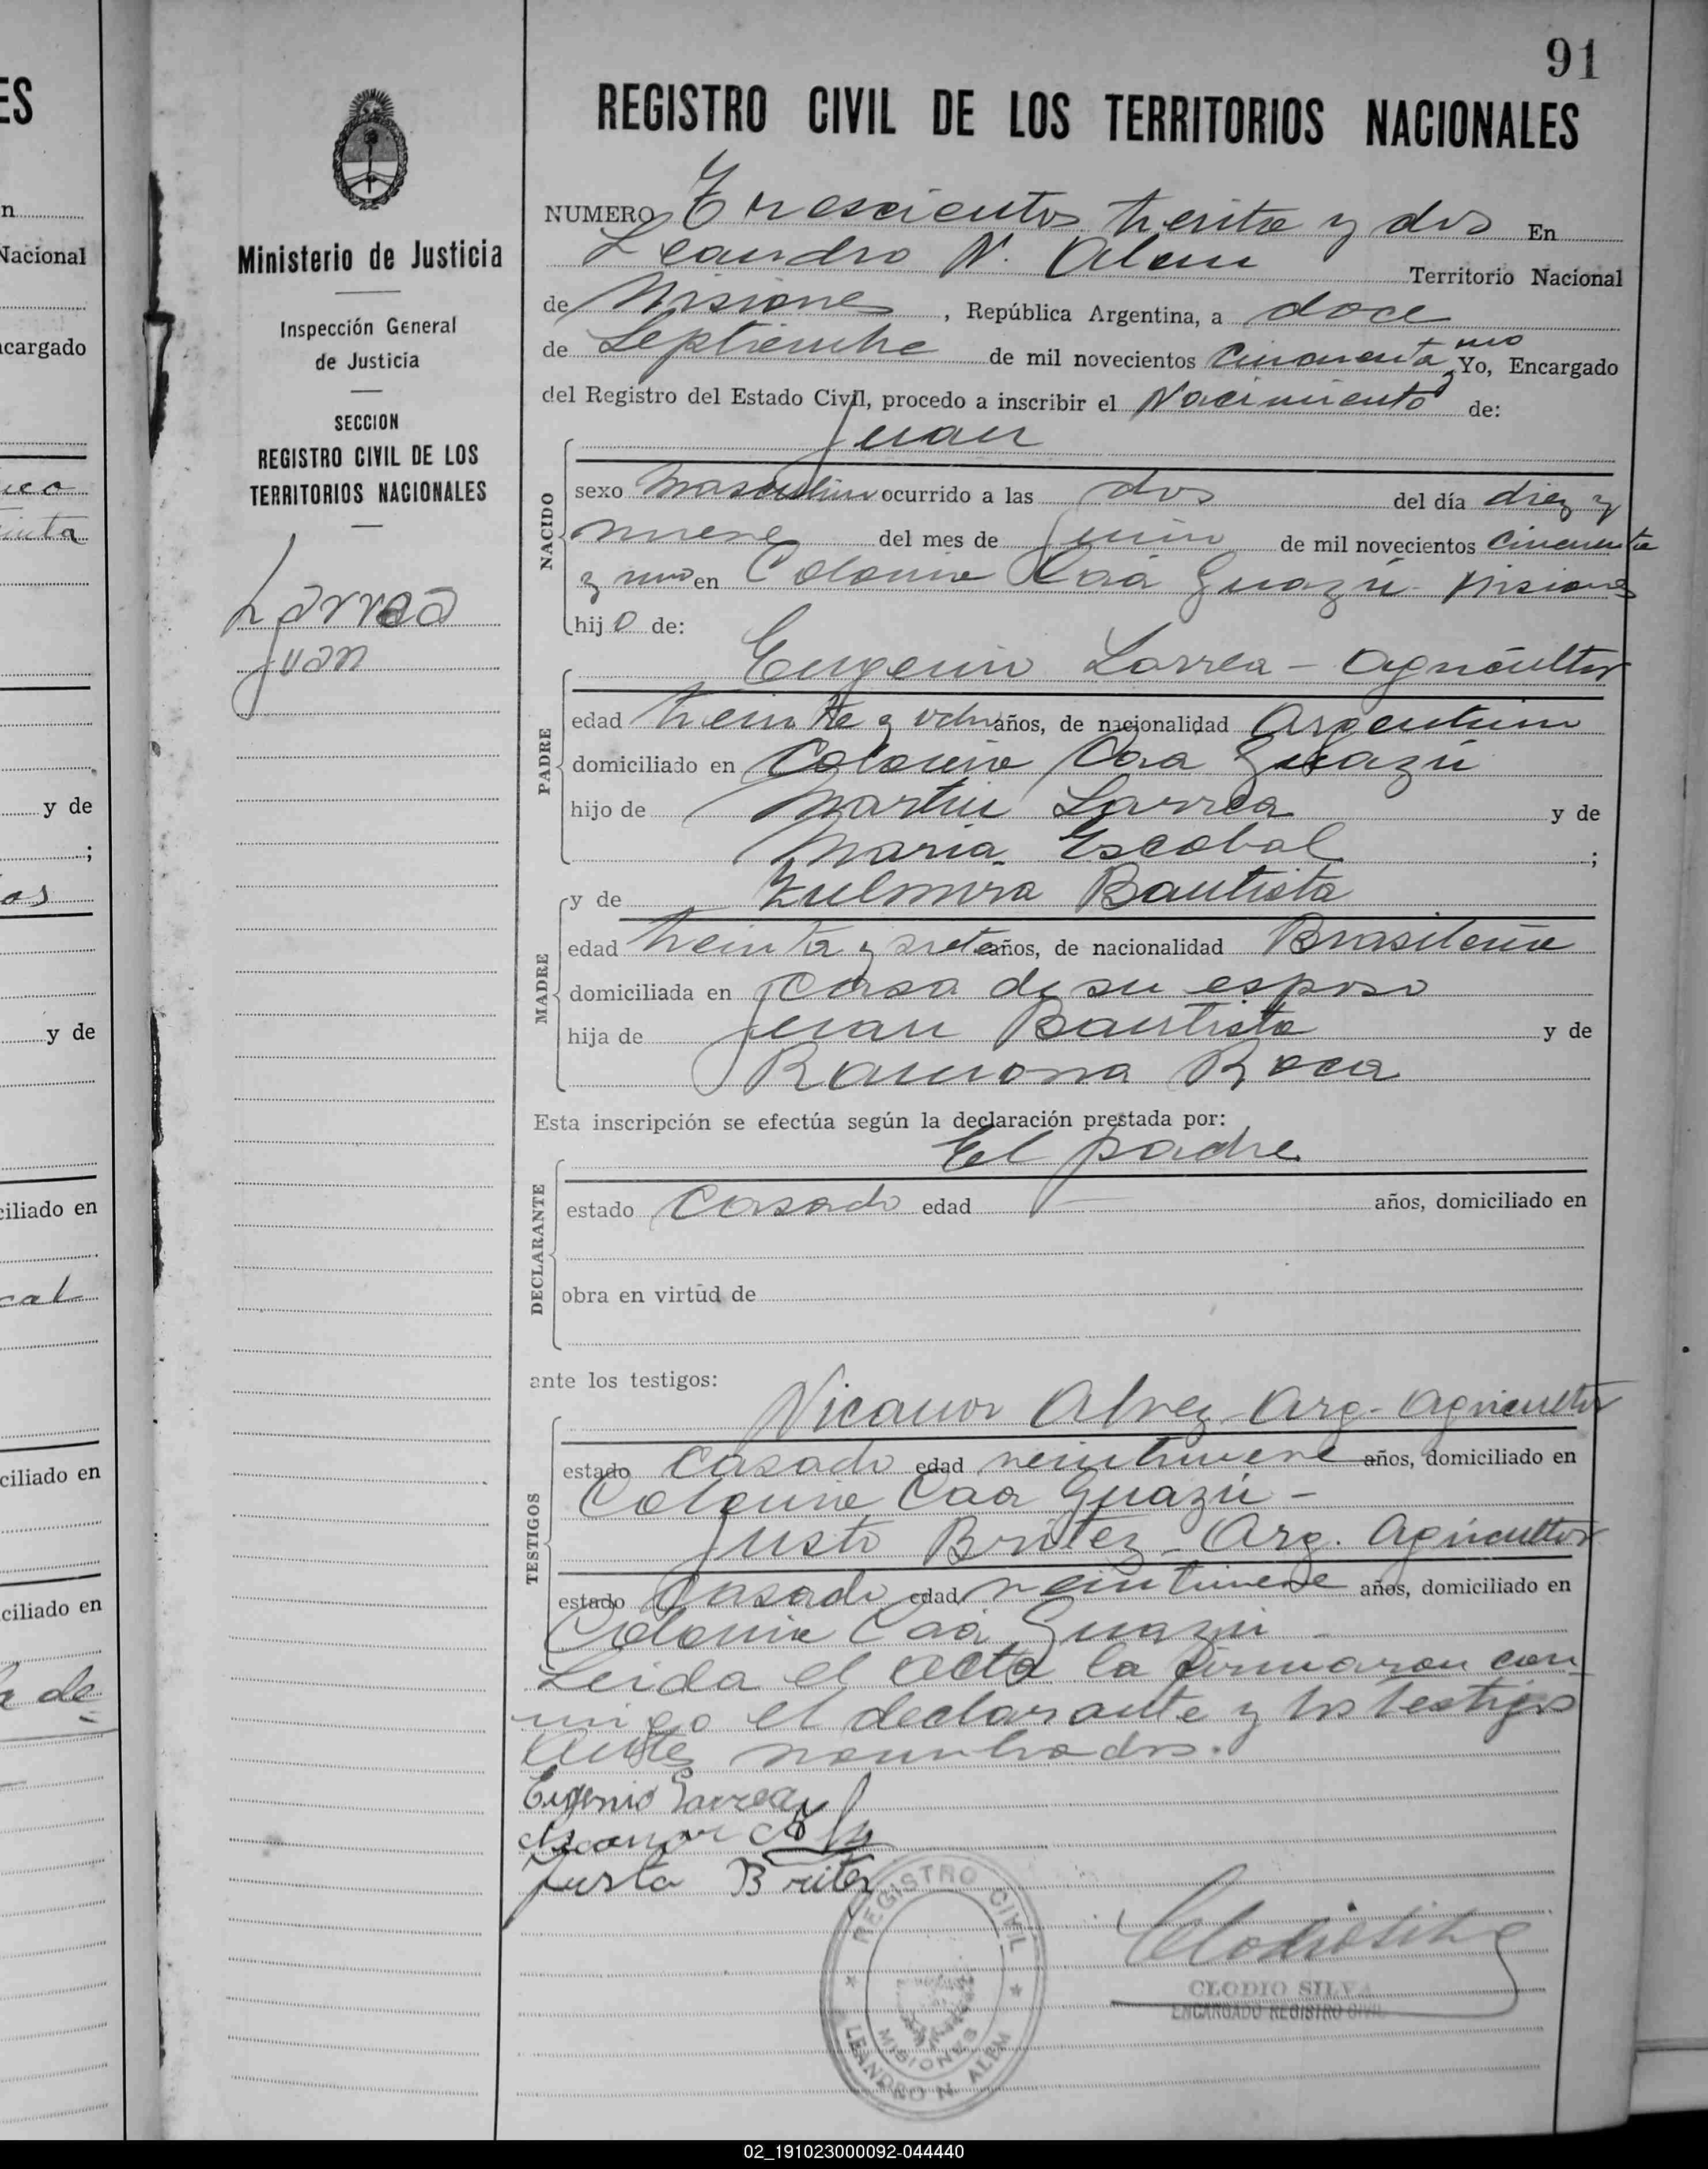 91
REGISTRO CIVIL DE LOS TERRITORIOS NACIONALES
Ministerio de Justicia
Inspección General
de Justicia
SECCION
REGISTRO CIVIL DE LOS
TERRITORIOS NACIONALES
Larrea
Juan
NUMERO Trescientos treinta y dos En
Leandro N. Alem Territorio Nacional
de Misiones, República Argentina, a doce
de Septiembre de mil novecientos cincuenta y uno Yo, Encargado
del Registro del Estado Civil, procedo a inscribir el Nacimiento de:
Juan
NACIDO
sexo masculino ocurrido a las dos del día diez y
nueve del mes de Junio de mil novecientos cincuenta
y uno en Colonia Caá Guazú - Misiones
hijo de:
Eugenio Larrea - Agricultor
PADRE
edad treinta y ocho años, de nacionalidad Argentino
domiciliado en Colonia Caa Guazú
hijo de Martin Larrea y de
Maria Escobal;
MADRE
y de Zulmira Bautista
edad treinta y siete años, de nacionalidad Brasileña
domiciliada en casa de su esposo
hija de Juan Bautista y de
Ramona Roca
Esta inscripción se efectúa según la declaración prestada por:
El padre
DECLARANTE
estado casado edad — años, domiciliado en
obra en virtud de
ante los testigos:
Nicanor Alvez - Arg - Agricultor
TESTIGOS
estado casado edad veintinueve años, domiciliado en
Colonia Caa Guazú -
Justo Britez - Arg. Agricultor
estado casado edad veintinueve años, domiciliado en
Colonia Caá Guazú -
Leida el acta la firmaron con
migo el declarante y los testigos
antes nombrados.
Eugenio Larrea
Nicanor
Justo Britez
REGISTRO CIVIL
MISIONES
LEANDRO N. ALEM
CLODIO SILVA
ENCARGADO REGISTRO CIVIL
02_191023000092-044440